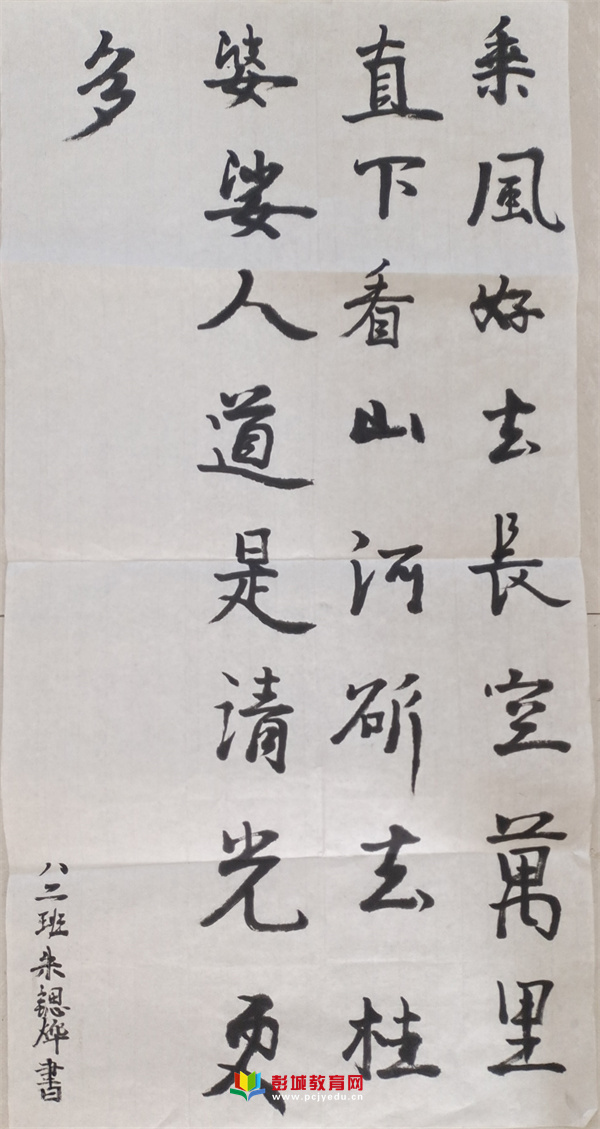 乘風好去長空萬里
直下看山河斫去桂
婆娑人道是清光更
多
八二班朱鍶燁書
彭城教育网
www.pcjyedu.cn